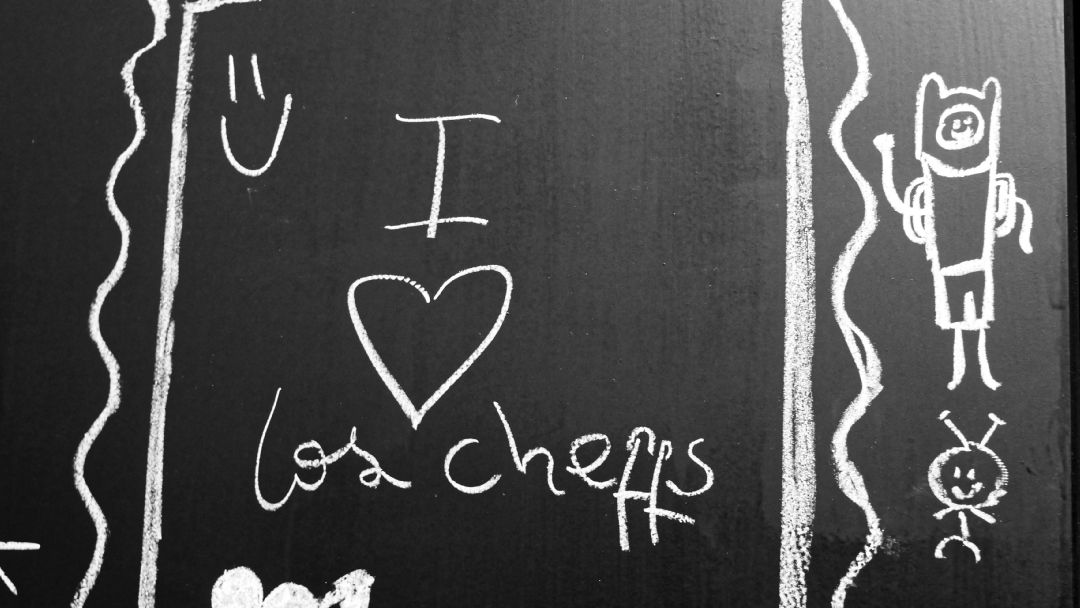 I
♥
los cheffs